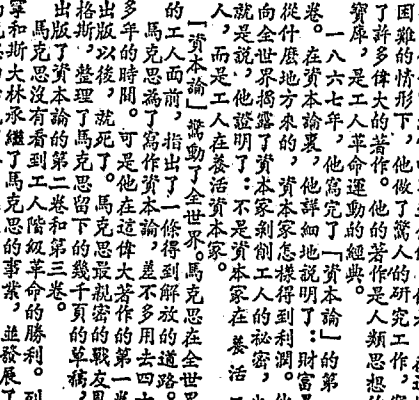 困難的情形下，他做了驚人的研究工作，
了許多偉大的著作。他的著作是人類思想的
寶庫，是工人革命運動的經典。
一八六七年，他寫完了「資本論」的第
卷。在資本論裏，他詳細地說明了：財富
從什麼地方來的，資本家怎樣得到利潤。
向全世界揭露了資本家剝削工人的秘密，
就是說，他證明了：不是資本家在養活
人，而是工人在養活資本家。
「資本論」驚動了全世界。馬克思在全世界
的工人面前，指出了一條得到解放的道路。
馬克思為了寫作資本論，差不多用去四十
多年的時間。可是他在這偉大著作的第一卷
出版以後，就死了。馬克思最親密的戰友恩
格斯，整理了馬克思留下的幾千頁的草稿，
出版了資本論的第二卷和第三卷。
馬克思沒有看到工人階級革命的勝利。列
寧和斯大林承繼了馬克思的事業，並發展了